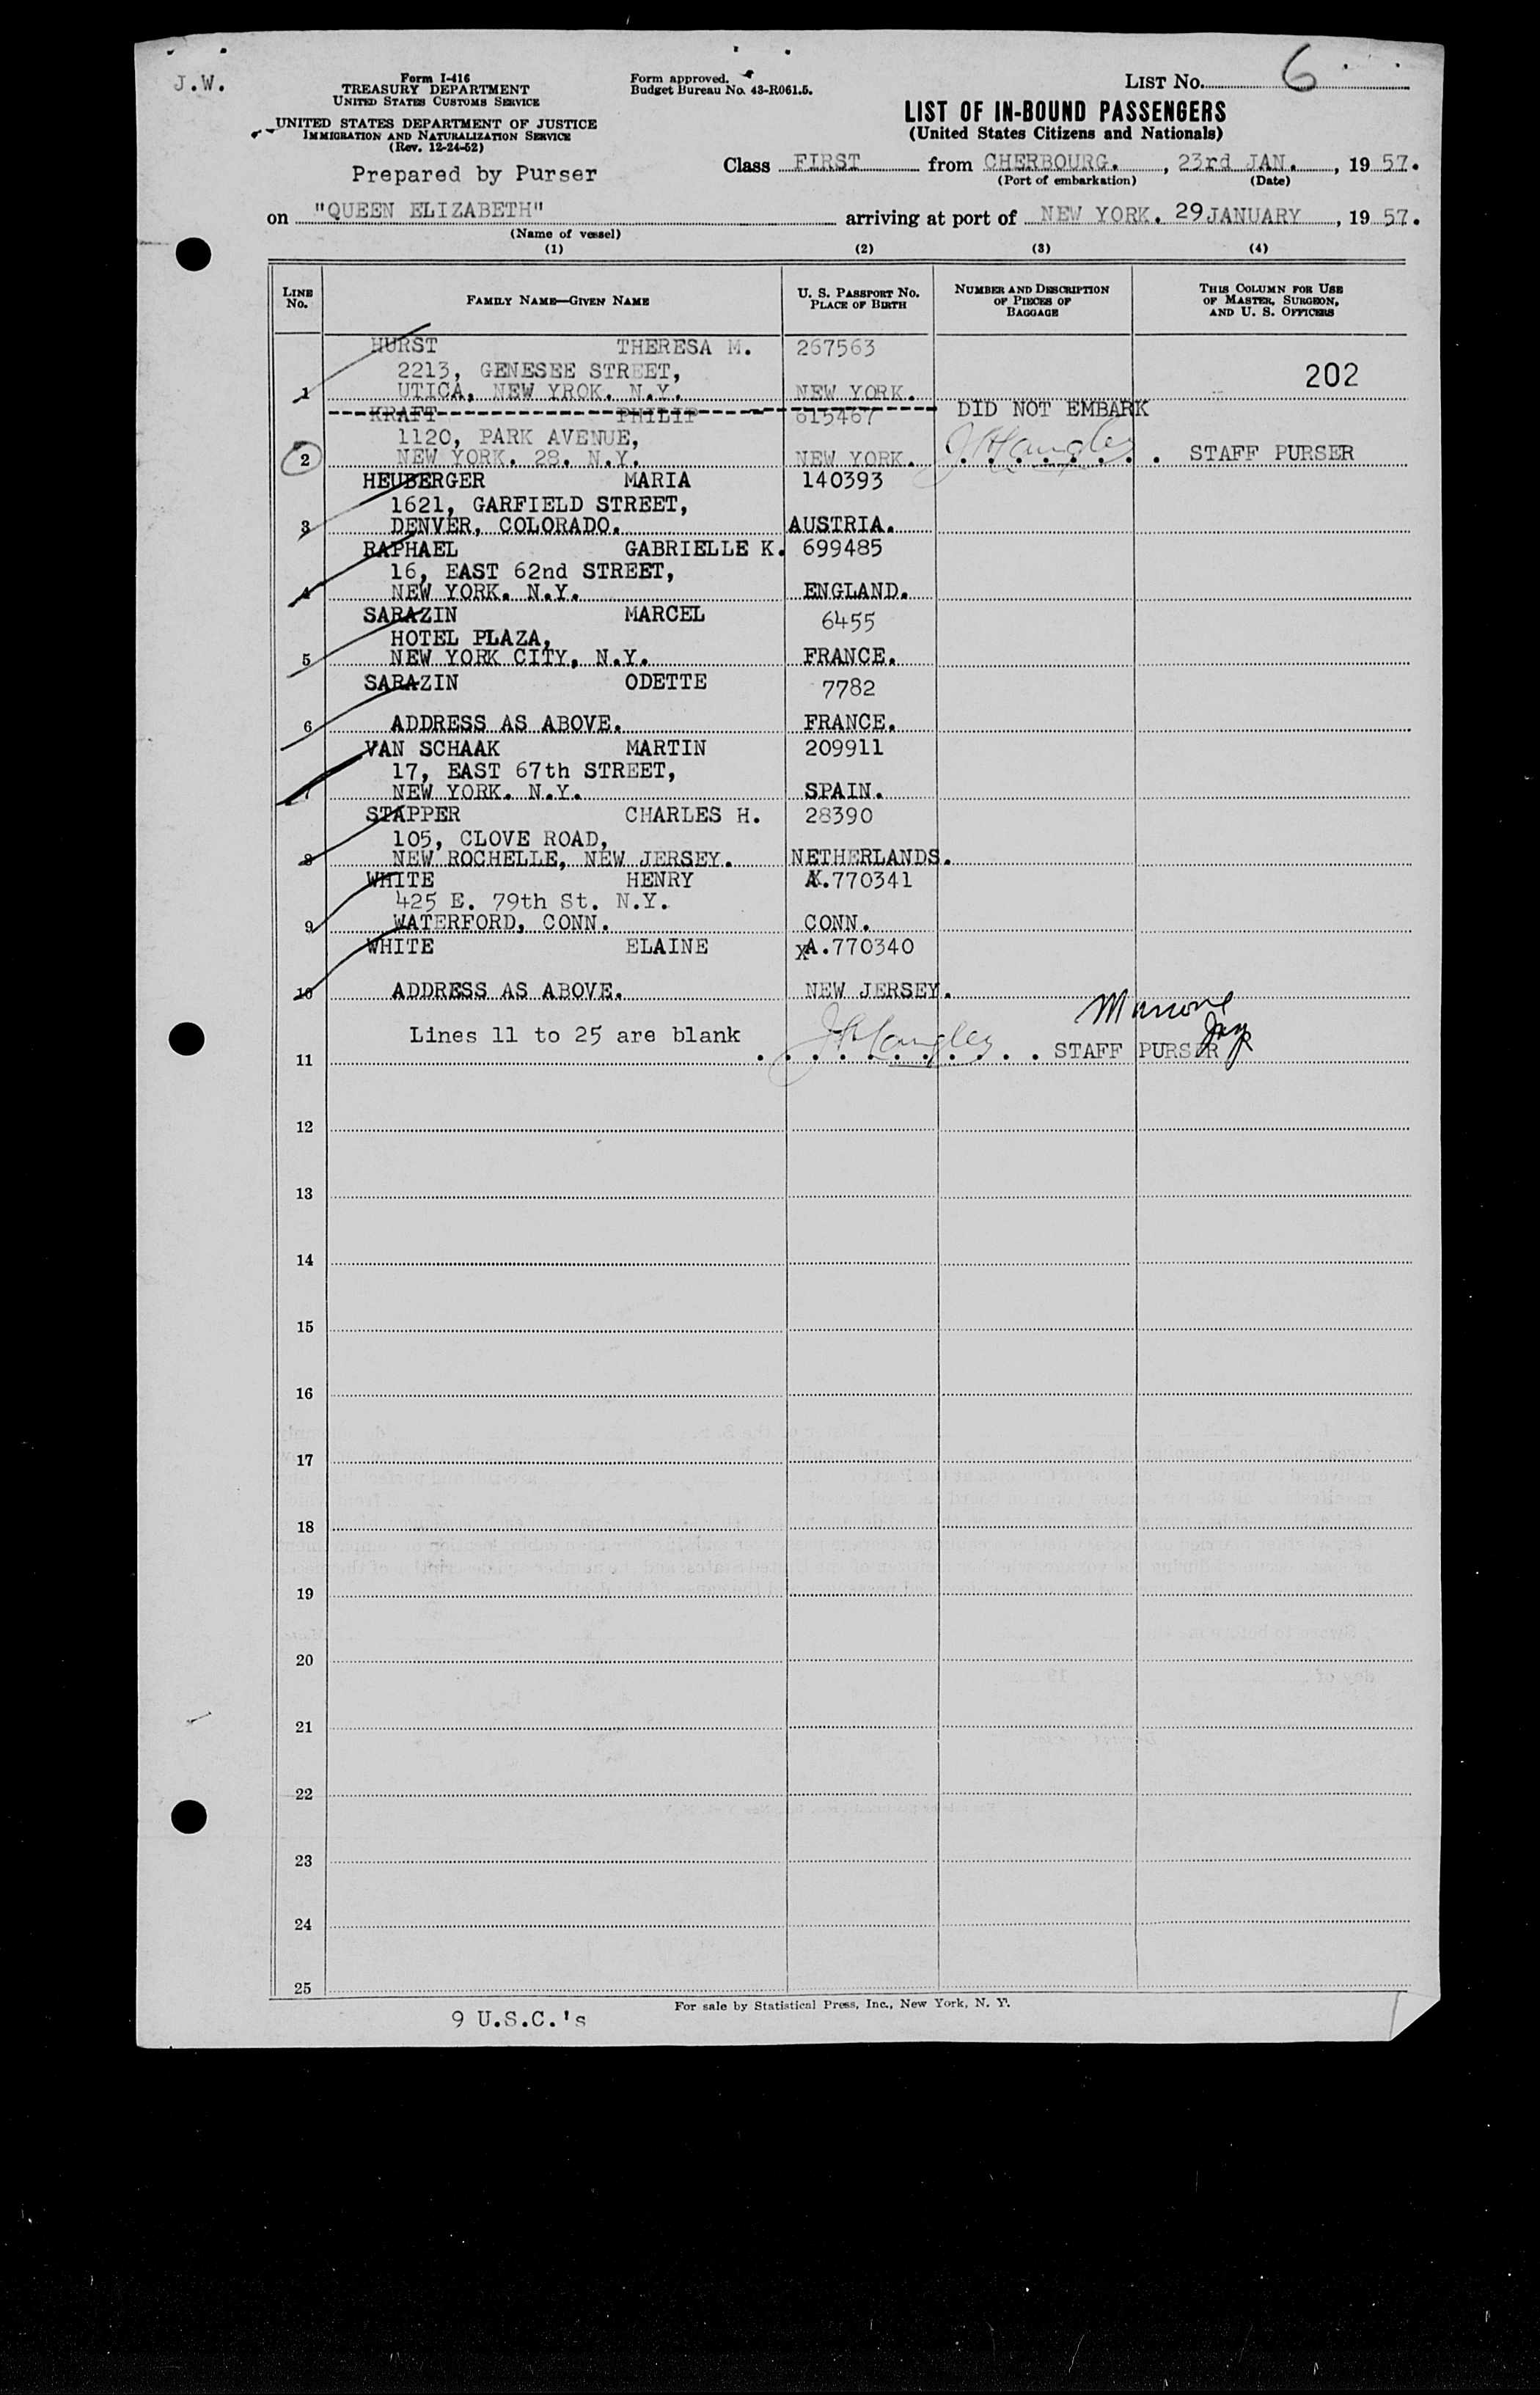 J.W.
Form I-416
TREASURY DEPARTMENT
UNITED STATES CUSTOMS SERVICE
UNITED STATES DEPARTMENT OF JUSTICE
IMMIGRATION AND NATURALIZATION SERVICE
(Rev. 12-24-52)
Prepared by Purser
Form approved.
Budget Bureau No. 43-R061.5.
LIST NO. 6
LIST OF IN-BOUND PASSENGERS
(United States Citizens and Nationals)
Class FIRST from CHERBOURG. , 23rd JAN. , 19 57.
(Port of embarkation) (Date)
on "QUEEN ELIZABETH" arriving at port of NEW YORK. 29 JANUARY , 19 57.
(Name of vessel)
(1) (2) (3) (4)
LINE NO. FAMILY NAME—GIVEN NAME U. S. PASSPORT NO. PLACE OF BIRTH NUMBER AND DESCRIPTION OF PIECES OF BAGGAGE THIS COLUMN FOR USE OF MASTER, SURGEON, AND U. S. OFFICERS
HURST THERESA M. 267563
2213, GENESEE STREET, 202
1 UTICA, NEW YROK. N.Y. NEW YORK.
KRAFT PHILIP 615467 DID NOT EMBARK
1120, PARK AVENUE,
2 NEW YORK. 28. N.Y. NEW YORK. STAFF PURSER
HEUBERGER MARIA 140393
1621, GARFIELD STREET,
3 DENVER, COLORADO. AUSTRIA.
RAPHAEL GABRIELLE K. 699485
16, EAST 62nd STREET,
4 NEW YORK. N.Y. ENGLAND.
SARAZIN MARCEL 6455
HOTEL PLAZA,
5 NEW YORK CITY, N.Y. FRANCE.
SARAZIN ODETTE 7782
6 ADDRESS AS ABOVE. FRANCE.
VAN SCHAAK MARTIN 209911
17, EAST 67th STREET,
7 NEW YORK. N.Y. SPAIN.
STAPPER CHARLES H. 28390
105, CLOVE ROAD,
8 NEW ROCHELLE, NEW JERSEY. NETHERLANDS.
WHITE HENRY A.770341
425 E. 79th St. N.Y.
9 WATERFORD, CONN. CONN.
WHITE ELAINE XA.770340
10 ADDRESS AS ABOVE. NEW JERSEY.
Lines 11 to 25 are blank
11 STAFF PURSER
12
13
14
15
16
17
18
19
20
21
22
23
24
25
For sale by Statistical Press, Inc., New York, N. Y.
9 U.S.C.'s